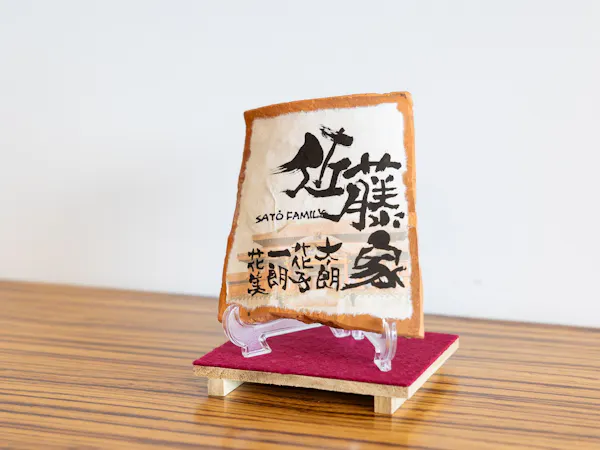 近藤家
SATŌ FAMILY
太朗
花子
一朗
花美